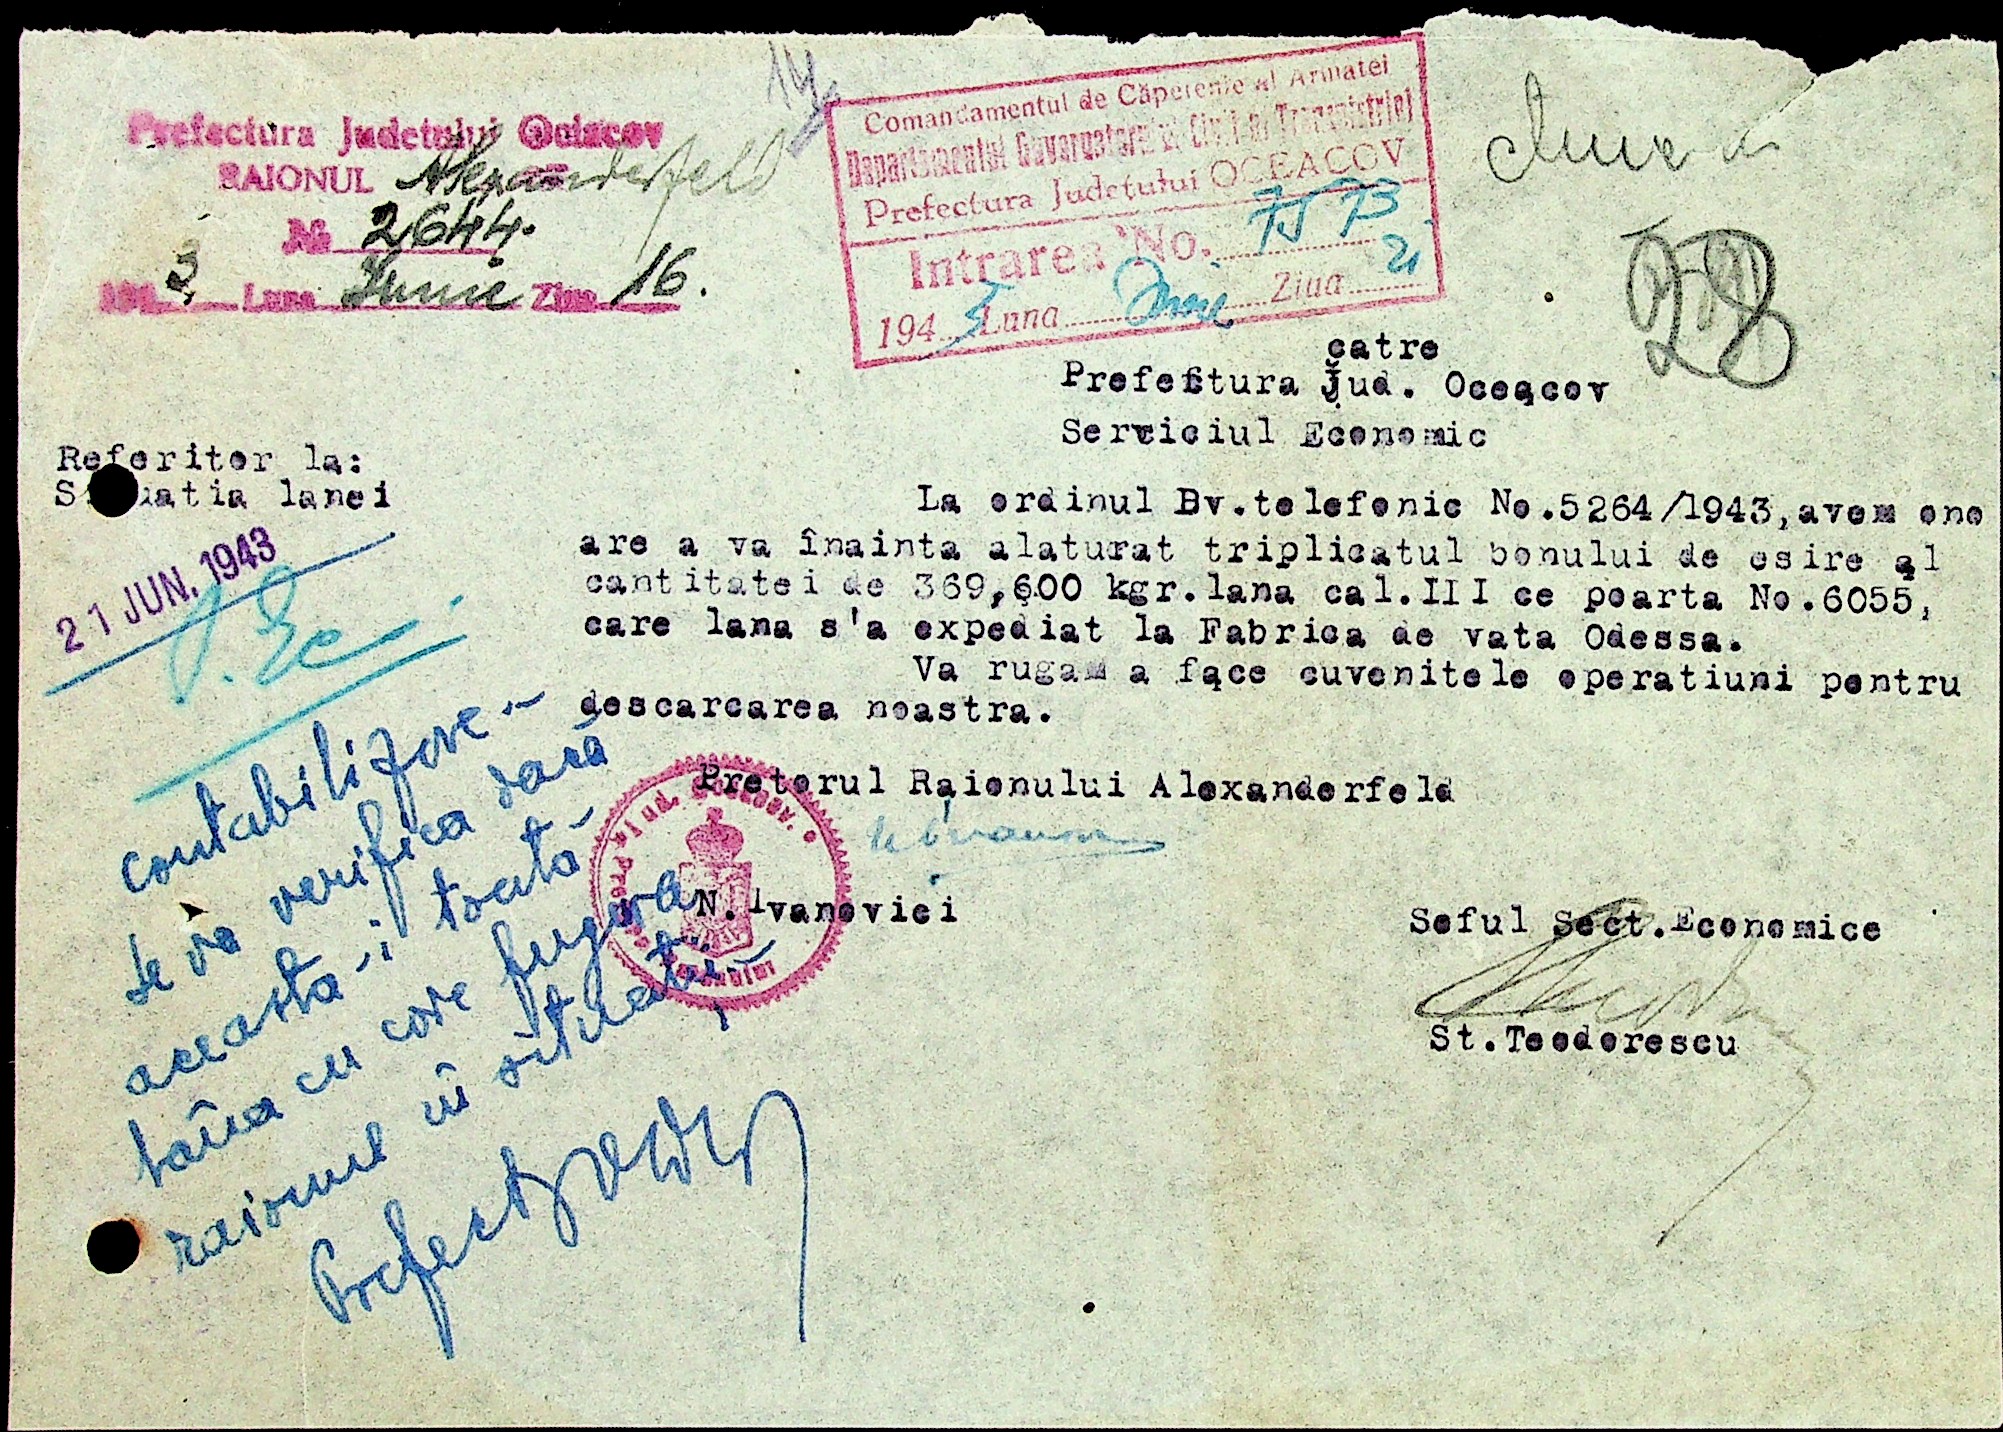 Prefectura Judetului Ociacov
RAIONUL Alexanderfeld
№ 2644.
1943 Luna Iunie Ziua 16.
Comandamentul de Căpetenie al Armatei
Departamentul Guvernatorul Civil al Transnistriei
Prefectura Județului OCEACOV
Intrarea No. 7573
1943 Luna Ziua 21
28
catre
Prefectura Jud. Oceacov
Serviciul Economic
Referitor la:
Situatia lanei
21 JUN. 1943
La ordinul Bv.telefonic No.5264/1943, avem ono
are a va înainta alaturat triplicatul bonului de esire al
cantitatei de 369,600 kgr.lana cal.III ce poarta No.6055,
care lana s'a expediat la Fabrica de vata Odessa.
Va rugam a face cuvenitele operatiuni pentru
descarcarea noastra.
Pretorul Raionului Alexanderfeld
N.Ivanovici
Seful Sect.Economice
St.Teodorescu
contabilizare -
se va verifica dacă
aceasta-i toată
lâna cu care figura
raionul în situații.-
Prefect